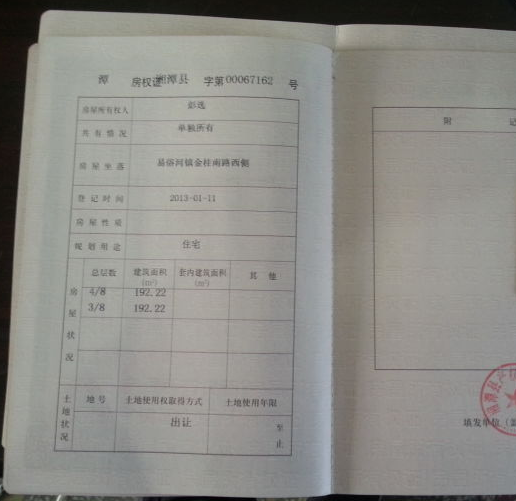 潭 房权证湘潭县 字第00067162 号
房屋所有权人 彭逸
共有情况 单独所有
房屋坐落 易俗河镇金桂南路西侧
登记时间 2013-01-11
房屋性质
规划用途 住宅
房屋状况
总层数 建筑面积(m²) 套内建筑面积(m²) 其他
4/8 192.22
3/8 192.22
土地状况
地号 土地使用权取得方式 土地使用年限
出让 至
止
附 记
填发单位(盖